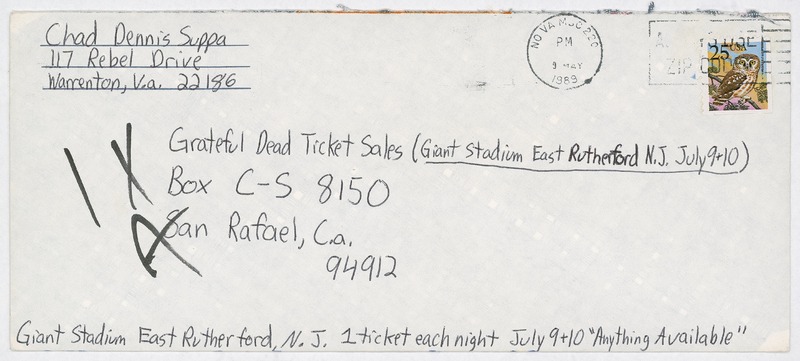 Chad Dennis Suppa
117 Rebel Drive
Warrenton, V.a. 22186
NO VA MSC 220
PM
9 MAY
1989
ZIP CO
25 USA
Grateful Dead Ticket Sales (Giant Stadium East Rutherford N.J. July 9+10)
Box C-S 8150
San Rafael, C.a.
94912
1X
A
Giant Stadium East Rutherford, N.J. 1 ticket each night July 9+10 "Anything Available"